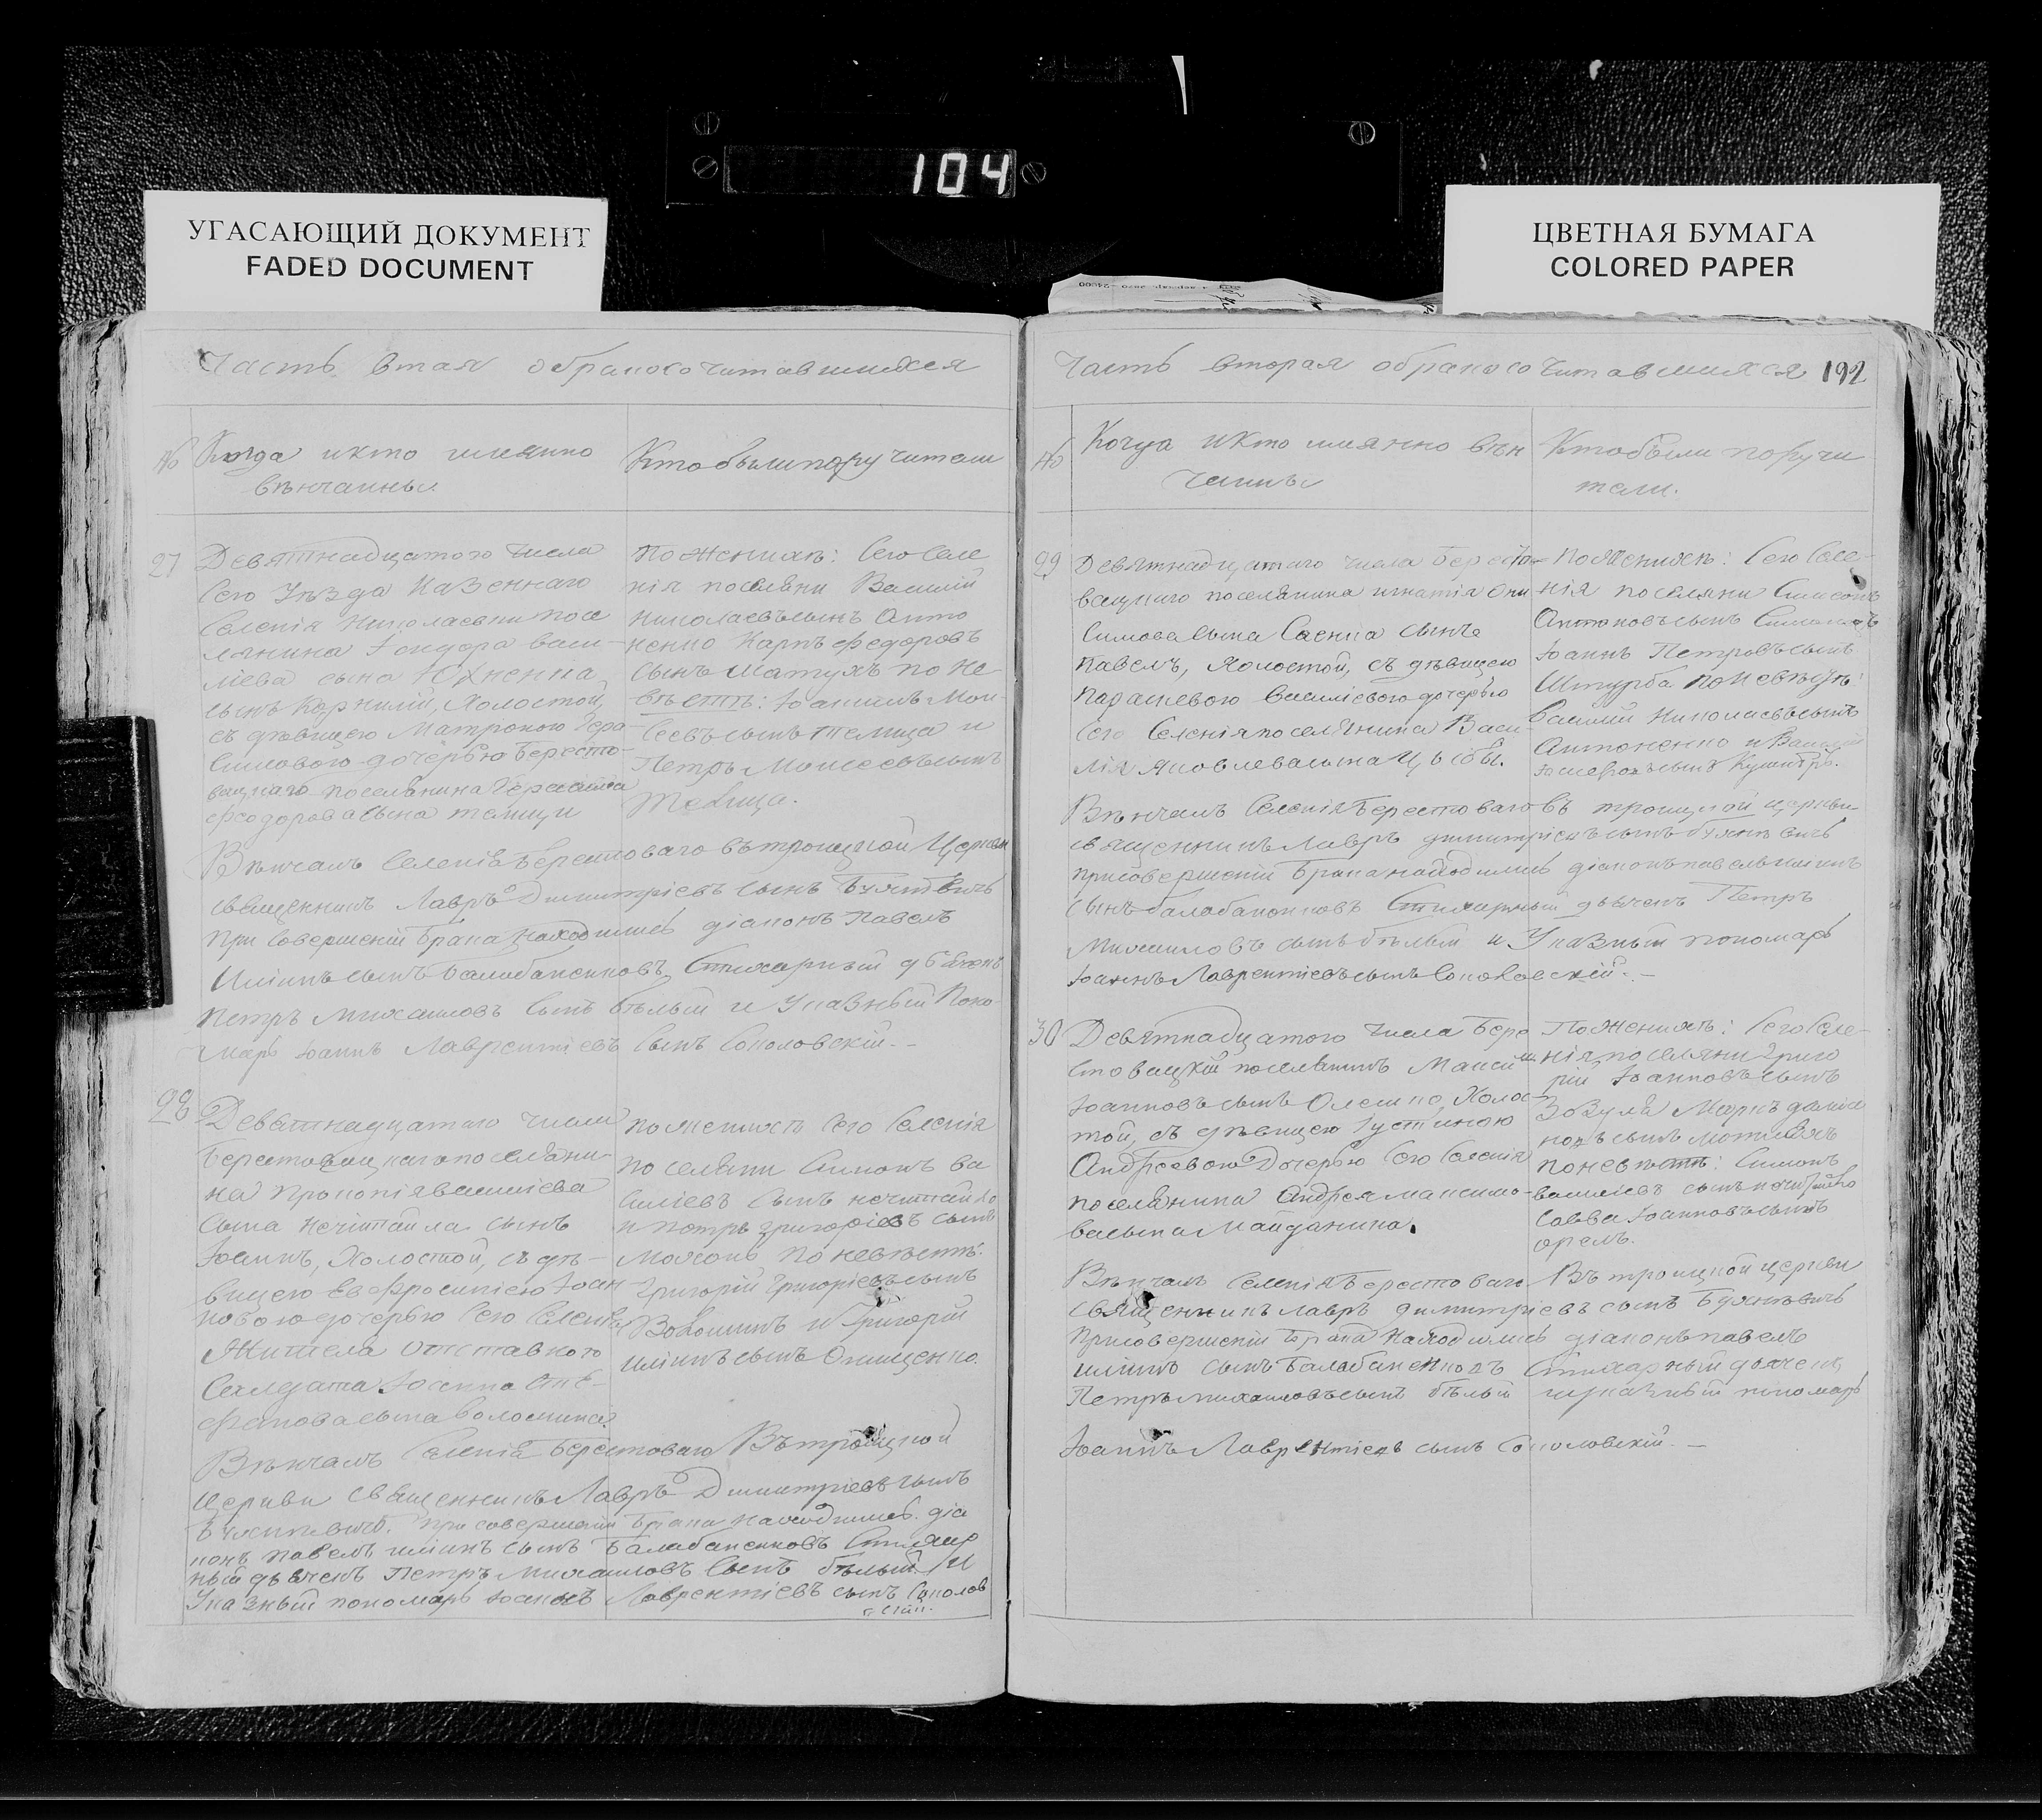 104
УГАСАЮЩИЙ ДОКУМЕНТ
FADED DOCUMENT
ЦВЕТНАЯ БУМАГА
COLORED PAPER
Часть втая обракосочитавшихся
№
Когда икто имянно
вѣнчанны.
Ктобылипоручители
27
Девятнадцатого числа
Сего Уѣзда Казеннаго
Селенія Николаевки посе
лянина Феодора Васи-
лiева сына Юхненка
сынъ Корнилій, Холостой,
съ дѣвицею Матроною Гера
симовою дочерью Бересто-
вацкаго поселянина Герасима
Феодорова сына телицы
Поженихѣ: Сего Селе
нія поселяни Василій
Николаевъ сынъ Анто
ненко Карпъ Федоровъ
сынъ Шатухъ по Не-
вѣстѣ: Іоакимъ Мои-
сеевъ сынъ телица и
Петръ Моисеевъ сынъ
Телица.
Вѣнчалъ Селенія Берестоваго въ троицкой Церкви
священникъ Лавръ Димитріевъ сынъ Бухнѣвичъ
при Совершеніи Брака находились діаконъ Павелъ
Иліинъ сынъ Балабаненковъ, Стихарный дьячекъ
Петръ Михаиловъ сынъ бѣлый и Указный Поно-
марь Іоаннъ Лаврентіевъ сынъ Соколовскій.-
28
Девятнадцатого числа
Берестовацкаго поселяни-
на Прокопія василиева
сына нечитайла сынъ
Іоаннъ, Холостой, съ дѣ-
вицею Евфросиниею Іоан-
новою дочерью Сего Селенія
Жителя отставного
Салдата Іоанна Сте-
фанова сына волошина
поженихѣ Сего Селенія
поселяни Симонъ ва
силіевъ сынъ нечитайло
и петръ григоріевъ сынъ
по невѣстѣ:
Григорій Григоріевъ сынъ
Волошинъ и Григорій
иліинъ сынъ Онищенко.
Вѣнчалъ Селенія Берестоваго Въ троицкой
церкви священникъ Лавръ Димитріевъ сынъ
Бухнѣвичъ. при совершеніи Брака находились діа
конъ павелъ иліинъ сынъ Балабаненковъ Стихар
ный дьячекъ Петръ Михаиловъ Сынъ бѣлый И
Указный пономарь Іоаннъ Лаврентіевъ сынъ Соколов
скій.
Часть вторая обракосочитавшихся
192
№
Когда икто имянно вѣн
чанны
Ктобыли поручи
тели.
29
Девятнадцатого числа Бересто-
вацкого поселянина игнатія Они
симова сына Саенка сынъ
Павелъ, Холостой, съ дѣвицею
Параскевою василіевою дочерью
Сего Селенія поселянина Васи-
лія Яковлева сына
Поженихѣ: Сего Селе-
нія поселяни Симеонъ
Антоновъ сынъ
Іоаннъ Петровъ сынъ
Штурба
Василій Николаевъ сынъ
Антоненко и Василій
Вѣнчалъ Селенія Берестоваго въ троицкой церкви
священникъ Лавръ димитріевъ сынъ бухнѣвичъ
присовершеніи Брака находились діаконъ павелъ иліинъ
сынъ балабаненковъ Стихарный дьячекъ Петръ
Михаиловъ сынъ бѣлый и Указный пономарь
Іоаннъ Лаврентіевъ сынъ Соколовскій.-
30
Девятнадцатого числа Бере
стовацкій поселянинъ Максимъ
Іоанновъ сынъ Олешко, Холос-
той, съ дѣвицею Іустиною
Андреевою Дочерью Сего Селенія
поселянина Андрея максимо-
ва сына Майданика.
Поженихѣ: Сего Селе-
нія поселяни Григо
рій Іоанновъ сынъ
Зозуля Маркъ
по невѣстѣ: Симонъ
василіевъ сынъ нечитайло
Савва Іоанновъ сынъ
орелъ.
Вѣнчалъ Селенія Берестоваго Въ троицкой церкви
Священникъ лавръ димитріевъ сынъ Бухнѣвичъ
присовершеніи Брака находились діаконъ павелъ
иліинъ сынъ Балабаненковъ Стихарный дьячекъ
Петръ михаиловъ сынъ бѣлый иуказный пономарь
Іоаннъ Лаврентіевъ сынъ Соколовскій.-